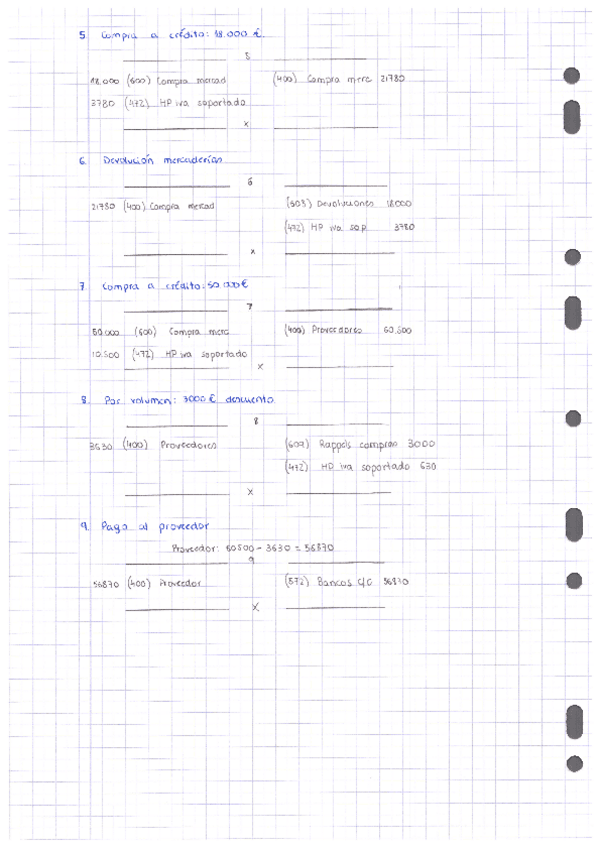 5 Compra a crédito: 18.000 €.
5
18.000 (600) Compra mercad (400) Compra merc 21780
3780 (472) HP iva soportado
x
6. Devolución mercaderías
6
21780 (400) Compra mercad (608) Devoluciones 18000
(472) HP iva sop. 3780
x
7. Compra a crédito: 50.000€
7
50.000 (600) Compra merc (400) Proveedores 60.500
10.500 (472) HP iva soportado
x
8. Por volumen: 3000 € descuento
8
3630 (400) Proveedores (609) Rappels compras 3000
(472) HP iva soportado 630
x
9. Pago al proveedor
Proveedor: 60500 - 3630 = 56870
9
56870 (400) Proveedor (572) Bancos c/c 56870
x